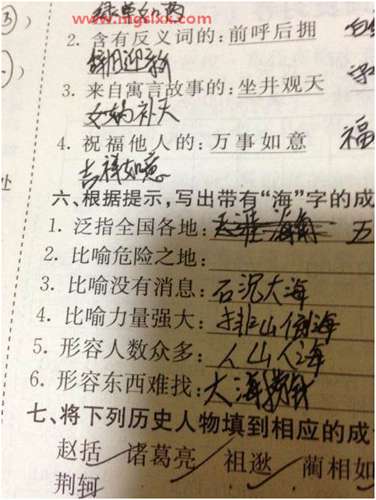 www.mgslxx.com
2. 含有反义词的: 前呼后拥
辞旧迎新
3. 来自寓言故事的: 坐井观天
女娲补天
4. 祝福他人的: 万事如意 福
吉祥如意
六、根据提示,写出带有“海”字的成
1. 泛指全国各地: 天涯海角 五
2. 比喻危险之地:
3. 比喻没有消息: 石沉大海
4. 比喻力量强大: 排山倒海
5. 形容人数众多: 人山人海
6. 形容东西难找: 大海捞针
七、将下列历史人物填到相应的成
赵括 诸葛亮 祖逖 蔺相如
荆轲